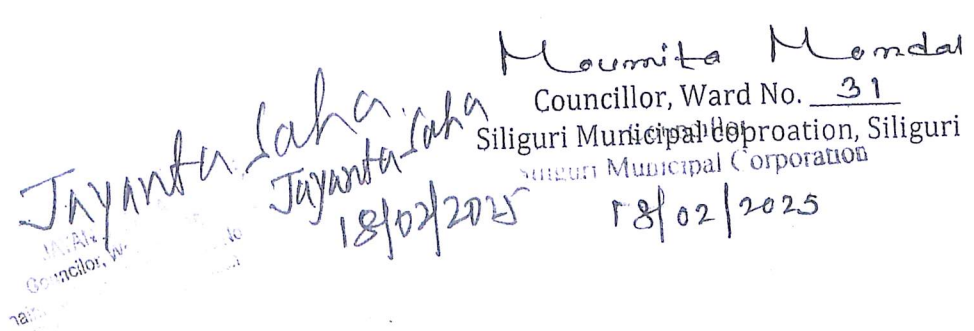 Moumita Mondal
Councillor, Ward No. 31
Siliguri Municipal Coproation, Siliguri
Siliguri Municipal Corporation
18/02/2025
Jayanta Saha
Jayanta Saha
18/02/2025
Councilor,